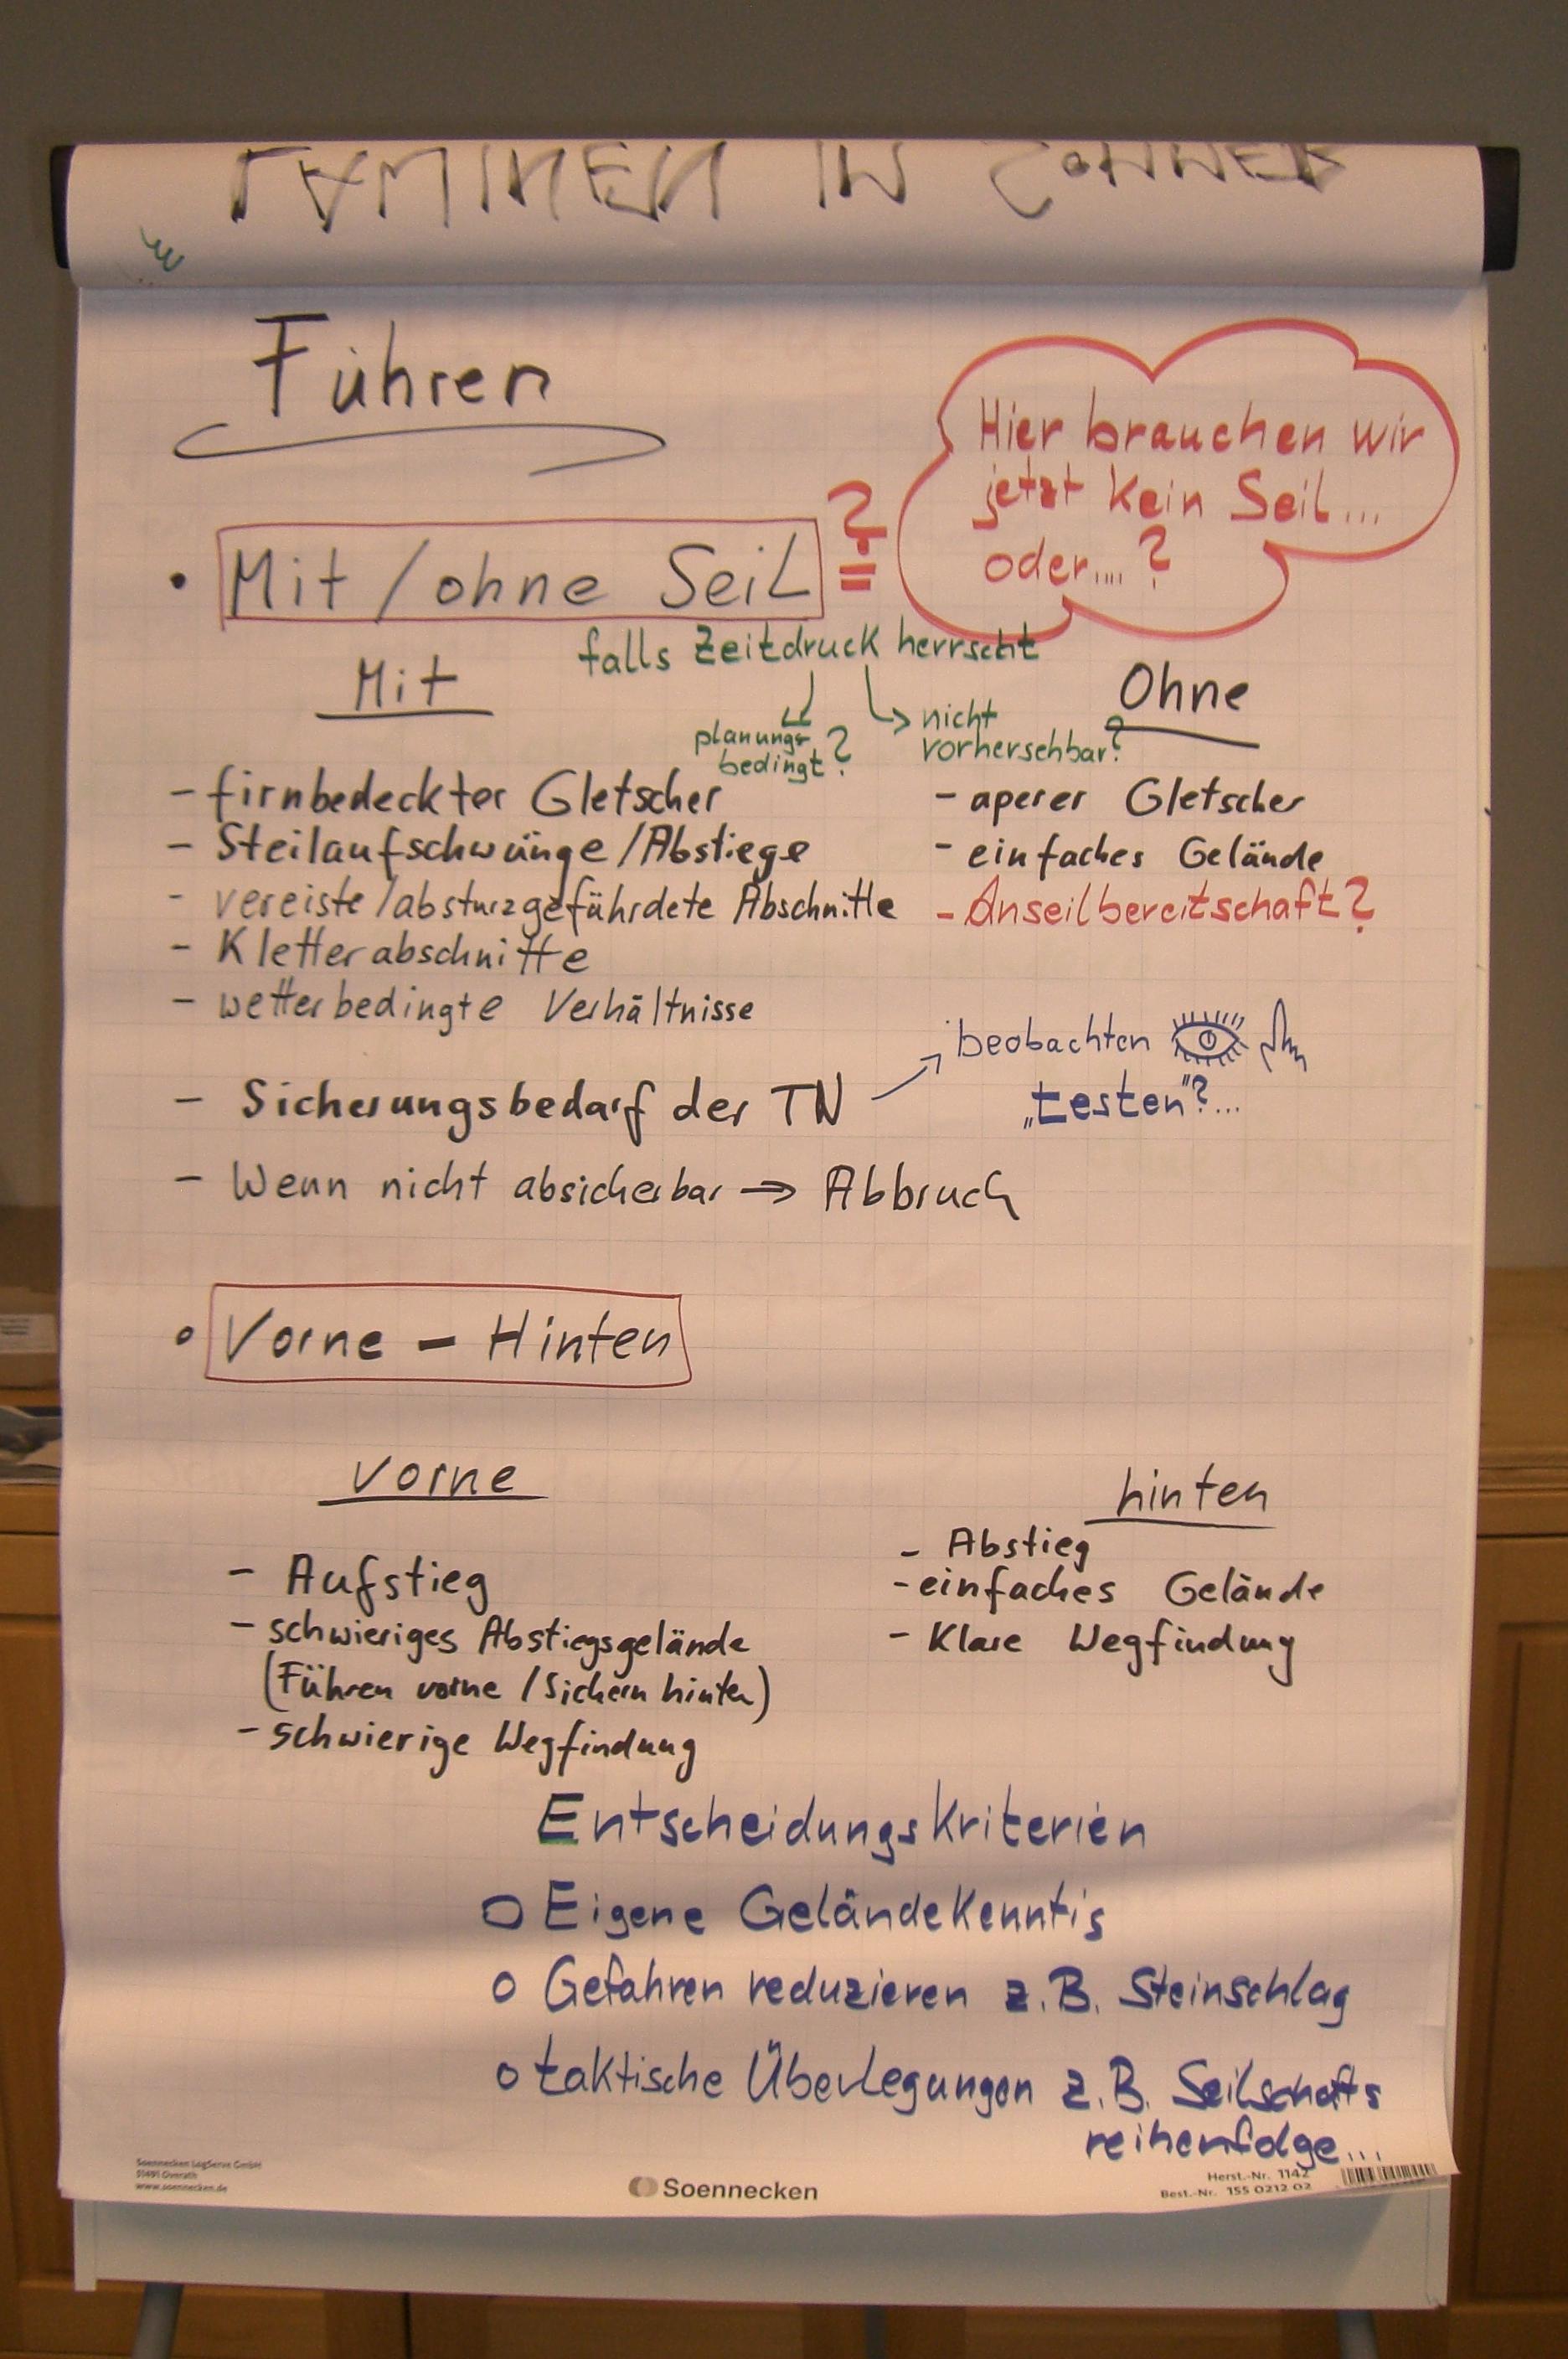 Führen
Hier brauchen wir
jetzt kein Seil...
oder....?
• Mit / ohne Seil ? =
falls Zeitdruck herrscht
planungs-
bedingt?
nicht
vorhersehbar?
Mit
- firnbedeckter Gletscher
- Steilaufschwünge/Abstiege
- vereiste/absturzgefährdete Abschnitte
- Kletterabschnitte
- wetterbedingte Verhältnisse
Ohne
- aperer Gletscher
- einfaches Gelände
- Anseilbereitschaft?
- Sicherungsbedarf der TN → beobachten
„testen"?...
- Wenn nicht absicherbar → Abbruch
• Vorne – Hinten
vorne
- Aufstieg
- schwieriges Abstiegsgelände
(Führen vorne / Sichern hinten)
- schwierige Wegfindung
hinten
- Abstieg
- einfaches Gelände
- Klare Wegfindung
Entscheidungskriterien
o Eigene Geländekenntis
o Gefahren reduzieren z.B. Steinschlag
o taktische Überlegungen z.B. Seilschafts
reihenfolge...
Soennecken LogServe GmbH
51491 Overath
www.soennecken.de
Soennecken
Herst.-Nr. 1142
Best.-Nr. 155 0212 02